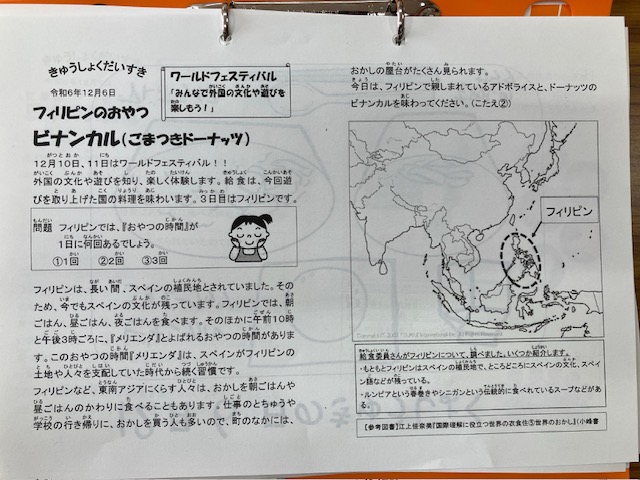 きゅうしょくだいすき
令和6年12月6日
ワールドフェスティバル
「みんなで外国の文化や遊びを
楽しもう!」
フィリピンのおやつ
ビナンカル(ごまつきドーナッツ)
12月10日、11日はワールドフェスティバル!!
外国の文化や遊びを知り、楽しく体験します。給食は、今回遊
びを取り上げた国の料理を味わいます。3日目はフィリピンです。
問題 フィリピンでは、『おやつの時間』が
1日に何回あるでしょう。
①1回 ②2回 ③3回
フィリピンは、長い間、スペインの植民地とされていました。そ
のため、今でもスペインの文化が残っています。フィリピンでは、朝
ごはん、昼ごはん、夜ごはんを食べます。そのほかに午前10時
と午後3時ごろに、『メリエンダ』とよばれるおやつの時間がありま
す。このおやつの時間『メリエンダ』は、スペインがフィリピンの
土地や人々を支配していた時代から続く習慣です。
フィリピンなど、東南アジアにくらす人々は、おかしを朝ごはんや
昼ごはんのかわりに食べることもあります。仕事のとちゅうや
学校の行き帰りに、おかしを買う人も多いので、町のなかには、
おかしの屋台がたくさん見られます。
今日は、フィリピンで親しまれているアドボライスと、ドーナッツの
ビナンカルを味わってください。(こたえ②)
フィリピン
給食委員さんがフィリピンについて、調べました。いくつか紹介します。
・もともとフィリピンはスペインの植民地で、ところどころにスペインの文化、スペイ
ン語などが残っている。
・ルンピアという春巻きやシニガンという伝統的に食べられているスープなどがあ
る。
【参考図書】江上佳奈美『国際理解に役立つ世界の衣食住⑤世界のおかし』(小峰書